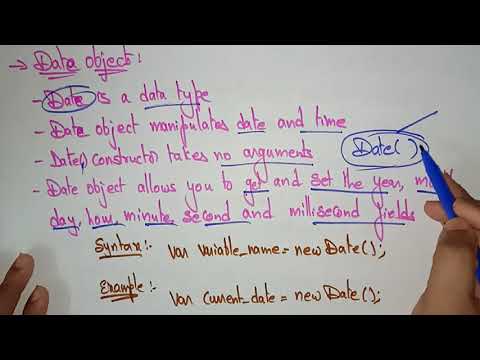 → Date object:
- Date is a data type
- Date object manipulates date and time
- Date() constructor takes no arguments
Date()
- Date object allows you to get and set the year,
day, hour, minute, second and millisecond fields
Syntax:- var variable_name = new Date();
Example:- var current_date = new Date();